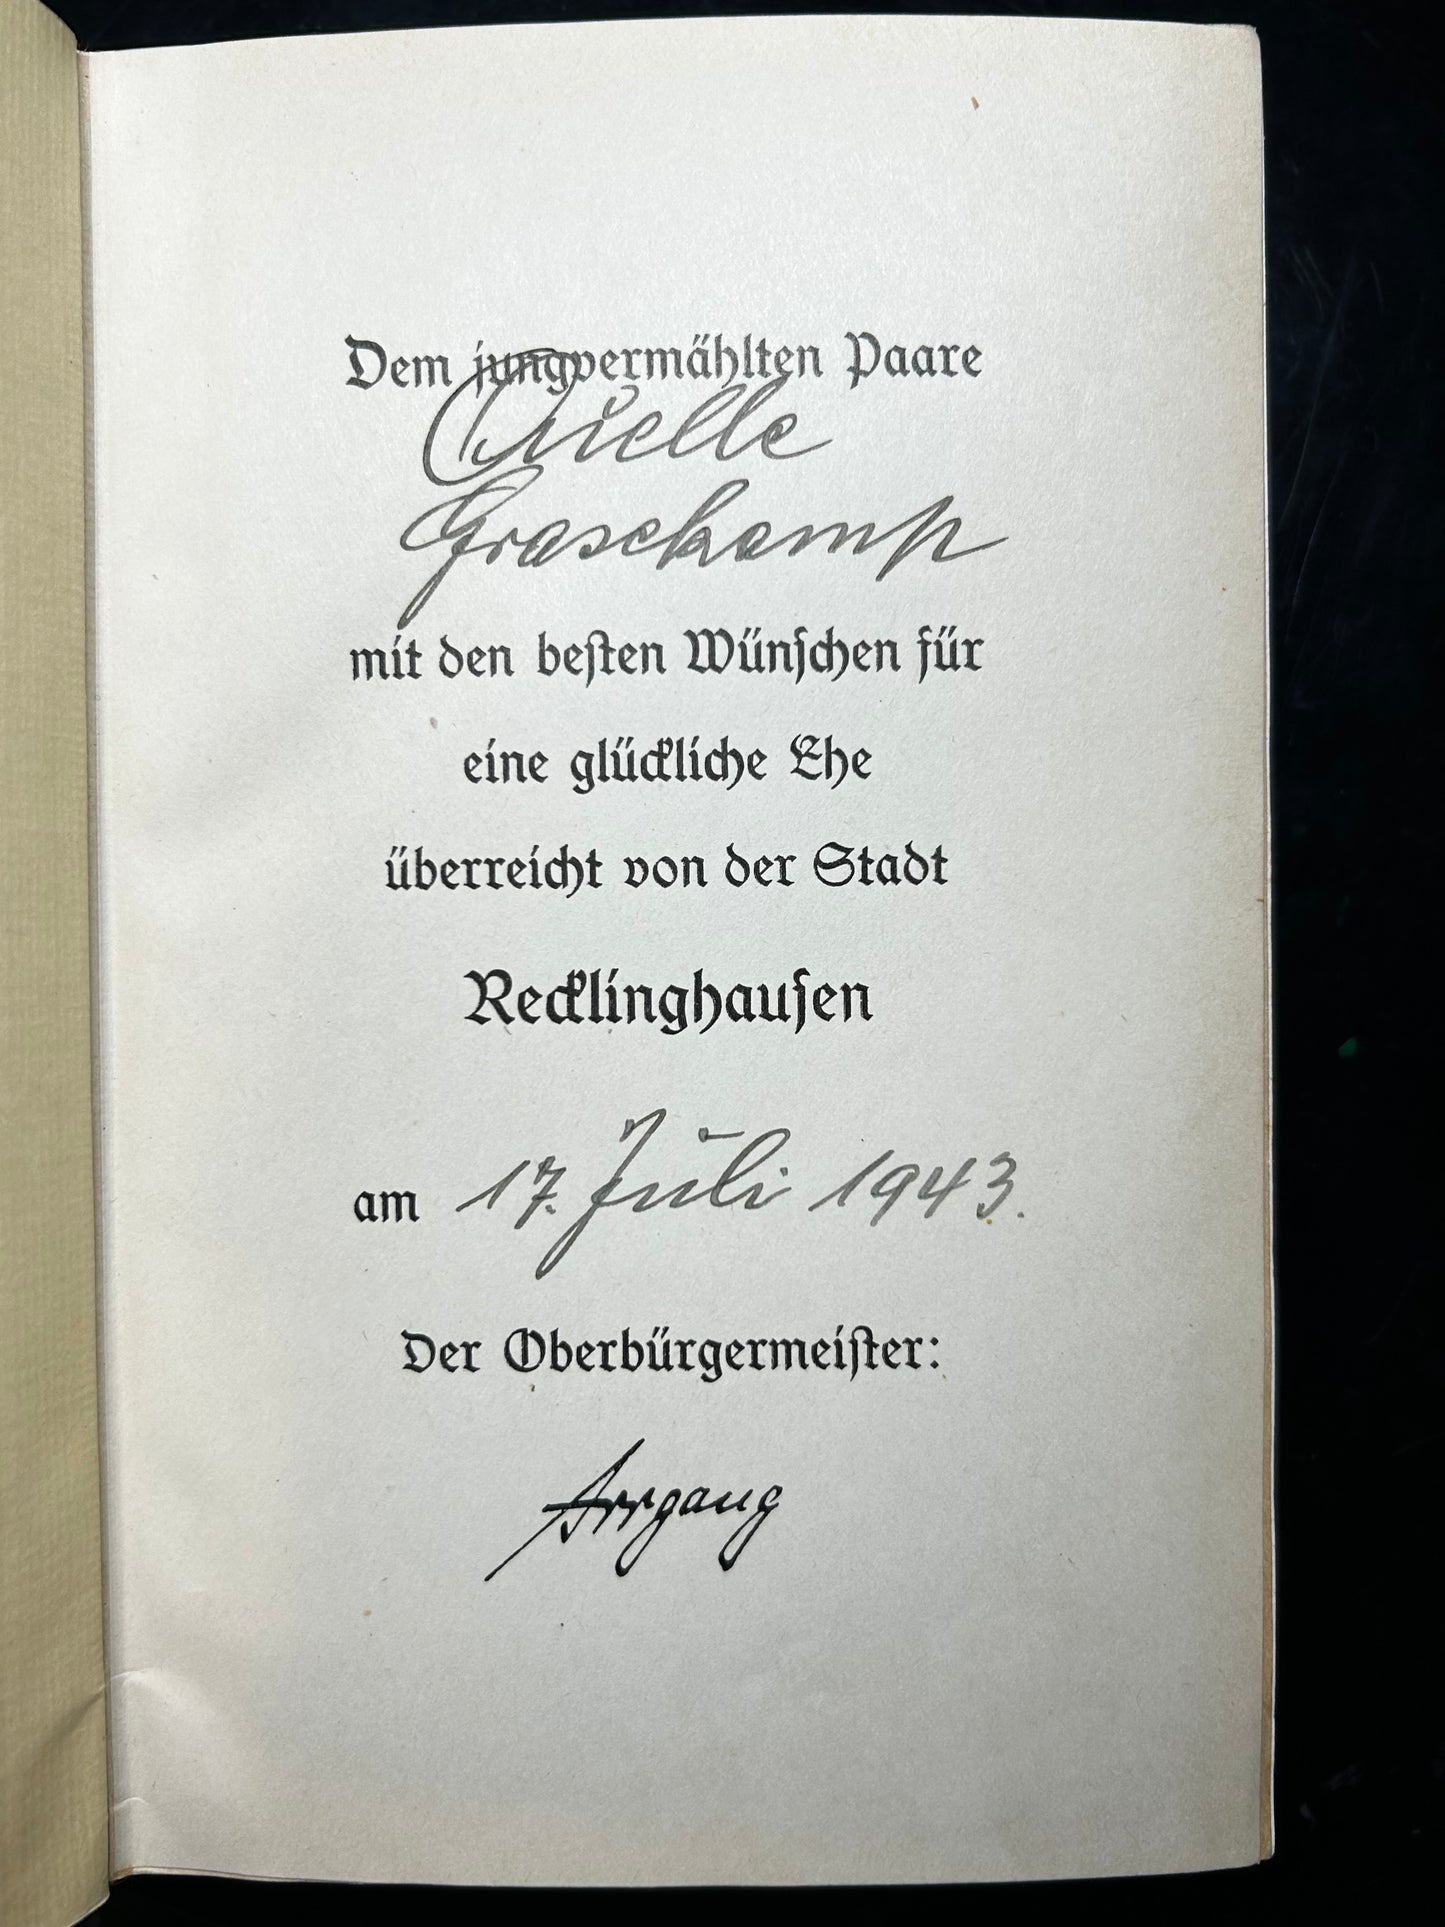 Dem jungvermählten Paare
Quelle
Grasekamp
mit den besten Wünschen für
eine glückliche Ehe
überreicht von der Stadt
Recklinghausen
am 17. Juli 1943.
Der Oberbürgermeister:
Irrgang